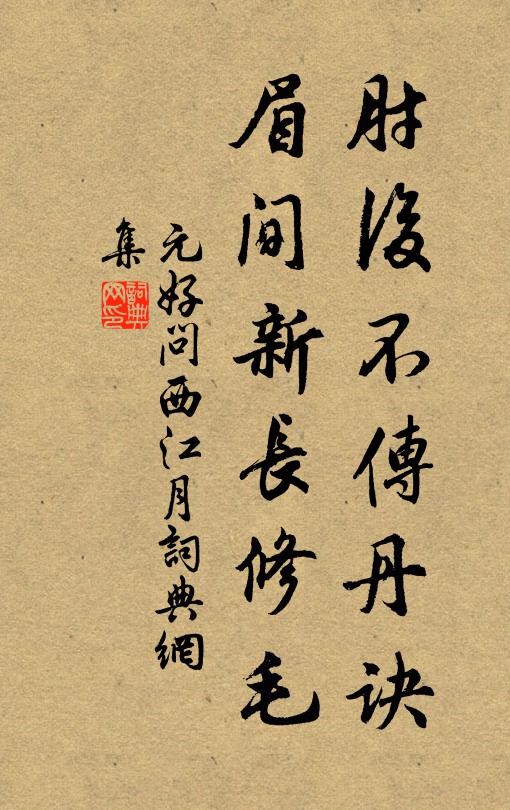 肘後不傳丹訣
眉間新長修毛
元好問西江月詞典網
集
詞典網印